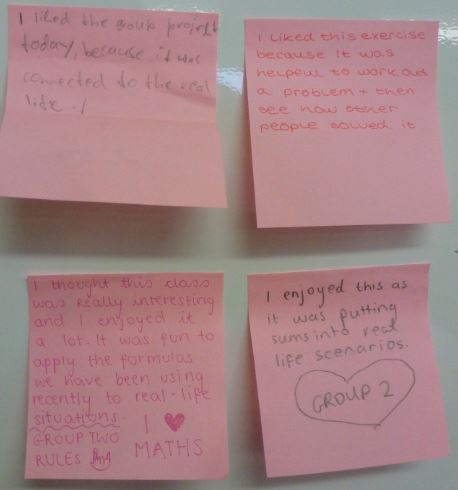 I liked the group project
today, because it was
connected to the real
life. !
I liked this exercise
because it was
helpful to work out
a problem + then
see how other
people solved it
I thought this class
was really interesting
and I enjoyed it
a lot. It was fun to
apply the formulas
we have been using
recently to real-life
situations.
GROUP TWO
RULES
I ♥
MATHS
I enjoyed this as
it was putting
sums into real
life scenarios.
GROUP 2